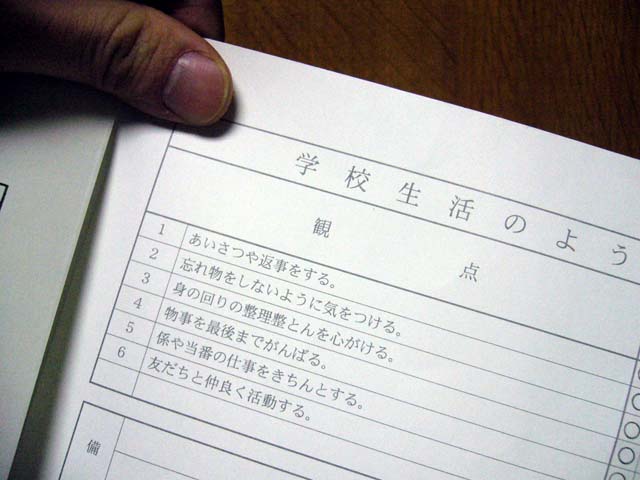 学校生活のよう
観点
1 あいさつや返事をする。
2 忘れ物をしないように気をつける。
3 身の回りの整理整とんを心がける。
4 物事を最後までがんばる。
5 係や当番の仕事をきちんとする。
6 友だちと仲良く活動する。
備